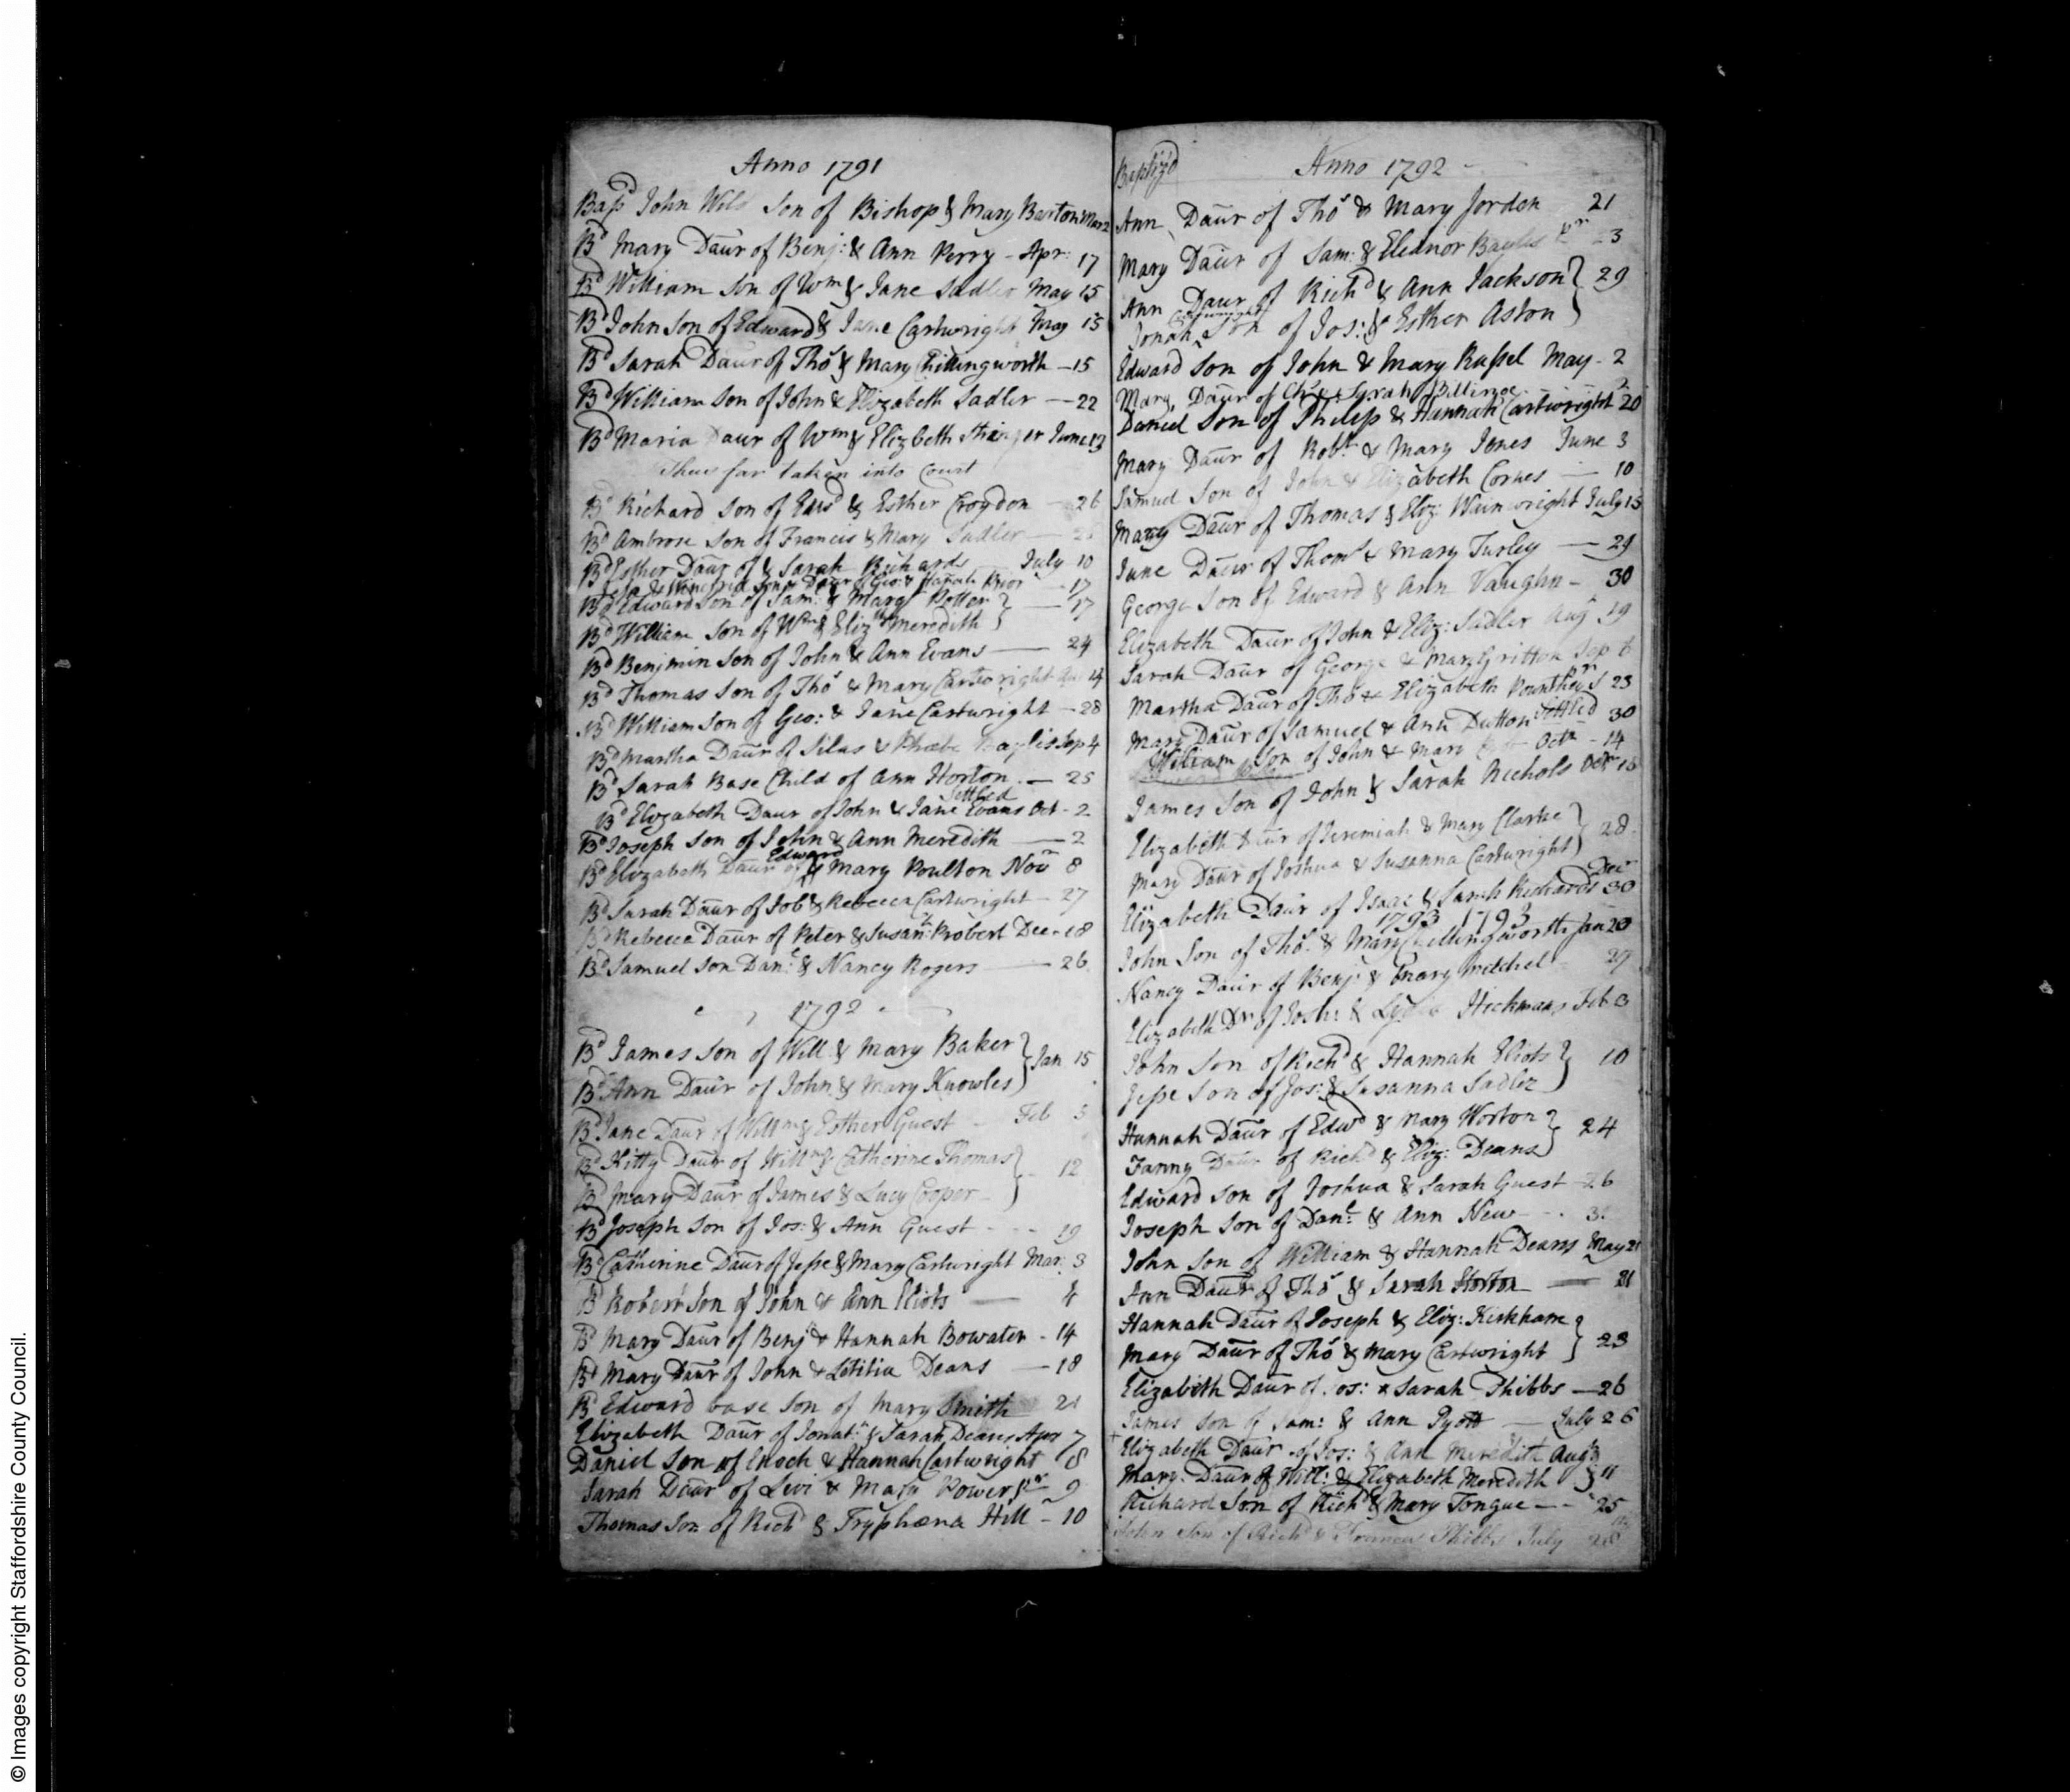 Anno 1791
Bapd John Wils Son of Bishop & Mary Barton Mar 2
Bd Mary Daur of Benj: & Ann Perry - Apr: 17
Bd William Son of Wm & Jane Sadler May 15
Bd John Son of Edward & Jane Cartwright May 15
Bd Sarah Daur of Thos & Mary Chillingworth - 15
Bd William Son of John & Elizabeth Sadler - 22
Bd Maria Daur of Wm & Elizbeth June 13
Thus far taken into Court
Bd Richard Son of & Esther Croydon - 26
Bd Ambrose Son of Francis & Mary Sadler
Bd Esther Daur of & Sarah Richards July 10
Daur of Geo: & Hanah Prior - 17
Bd Edward Son of Sam: & Mary Potter } - 17
Bd William Son of Wm & Elizth Meredith }
Bd Benjmin Son of John & Ann Evans - 24
Bd Thomas Son of Thos & Mary Cartwright Au: 14
Bd William Son of Geo: & Jane Cartwright - 28
Bd Martha Daur of Silas & Phœbe Baylis Sep 4
Bd Sarah Base Child of Ann Horton - 25
Settled
Bd Elizabeth Daur of John & Jane Evans Oct - 2
Bd Joseph Son of John & Ann Meredith - 2
Edward
Bd Elizabeth Daur of & Mary Poulton Nov 8
Bd Sarah Daur of Job & Rebecca Cartwright - 27
Bd Rebecca Daur of Peter & Susanh Probert Dec - 18
Bd Samuel Son Danl & Nancy Rogers - 26
1792
Bd James Son of Will: & Mary Baker } Jan 15
Bd Ann Daur of John & Mary Knowles }
Bd Jane Daur of Willm & Esther Guest - Feb 5
Bd Kitty Daur of Willm & Catherine Thomas } - 12
Bd Mary Daur of James & Lucy Cooper - }
Bd Joseph Son of Jos: & Ann Guest - - - 19
Bd Catherine Daur of Jesse & Mary Cartwright Mar: 3
Bd Robert Son of John & Ann Eliots - 4
Bd Mary Daur of Benj & Hannah Bowater - 14
Bd Mary Daur of John & Letitia Deans - 18
Bd Edward base Son of Mary Smith 21
Elizabeth Daur of Jonatn & Sarah Deans Apr 7
Daniel Son of Enoch & Hannah Cartwright 8
Sarah Daur of Levi & Mary Power pr 9
Thomas Son of Richd & Tryphœna Hill - 10
Baptiz'd Anno 1792
Ann Daur of Thos & Mary Jorden 21
Mary Daur of Sam: & Eleanor Baylis pr 23
Ann Daur of Richd & Ann Jackson } 29
Cartwright
Jonah Son of Jos: & Esther Aston }
Edward Son of John & Mary Russel May - 2
Mary Daur of Chr & Sarah
Daniel Son of Philip & Hannah Cartwright 20
Mary Daur of Robt & Mary Jones June 3
Samuel Son of John & Elizabeth Cornes - 10
Mary Daur of Thomas & Eliz: Wainwright July 15
Jane Daur of Thoms & Mary Turley - 29
George Son of Edward & Ann Vaughn - 30
Elizabeth Daur of John & Eliz: Sadler Aug 19
Sarah Daur of George & Mary Gritton Sep 6
Martha Daur of Thos & Elizabeth 23
Mary Daur of Samuel & Ann Dutton Settled 30
William Son of John & Mary Octr - 14
James Son of John & Sarah Nichols Octr 18
Elizabeth Daur of Jeremiah & Mary Clarke } 28
Mary Daur of Joshua & Susanna Cartwright }
Elizabeth Daur of Isaac & Sarah Richards Decr 30
1793 1793
John Son of Thos & Mary Chillingworth Jan 20
Nancy Daur of Benj: & Mary Mitchel - 27
Elizabeth Dr of Josh: & Lydia Hickmans Feb 3
John Son of Richd & Hannah Eliots } 10
Jesse Son of Jos: & Susanna Sadler }
Hannah Daur of Edwd & Mary Worton } 24
Fanny Daur of Richd & Eliz: Deans }
Edward Son of Joshua & Sarah Guest - 26
Joseph Son of Danl: & Ann New - - 3
John Son of William & Hannah Deans May 21
Ann Daur of Thos & Sarah Horton - 21
Hannah Daur of Joseph & Eliz: Kirkham } 23
Mary Daur of Thos & Mary Cartwright }
Elizabeth Daur of Jos: & Sarah Phibbs - 26
James Son of Sam: & Ann Pyott - July 26
Elizabeth Daur of Jos: & Ann Meredith Aug
Mary Daur of Will: & Elizabeth Meredith } 11
Richard Son of Richd & Mary Tongue - - 25
John Son of Richd & Frances Phibbs July 28
© Images copyright Staffordshire County Council.